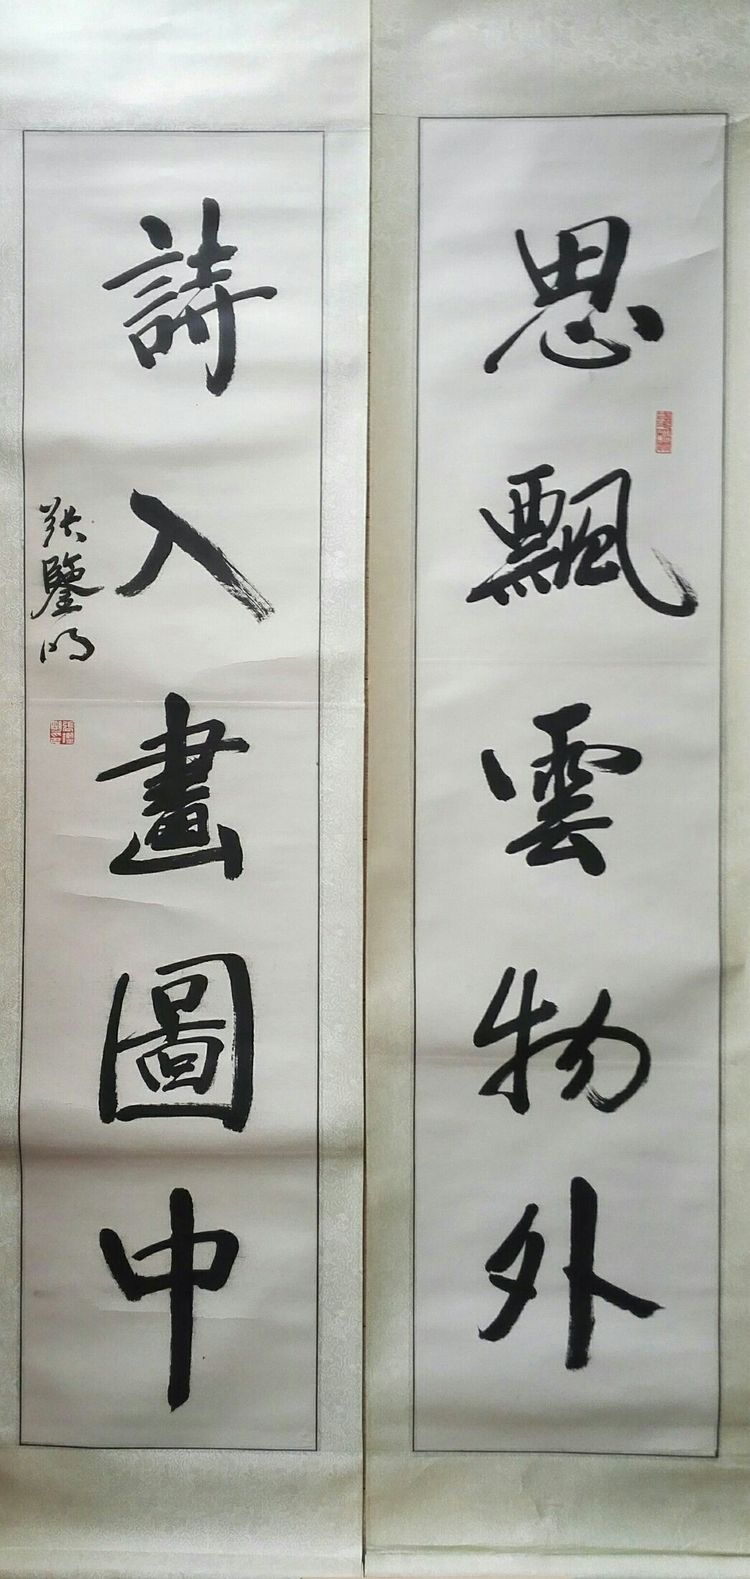 思飄雲物外
詩入畫圖中
張鑒明